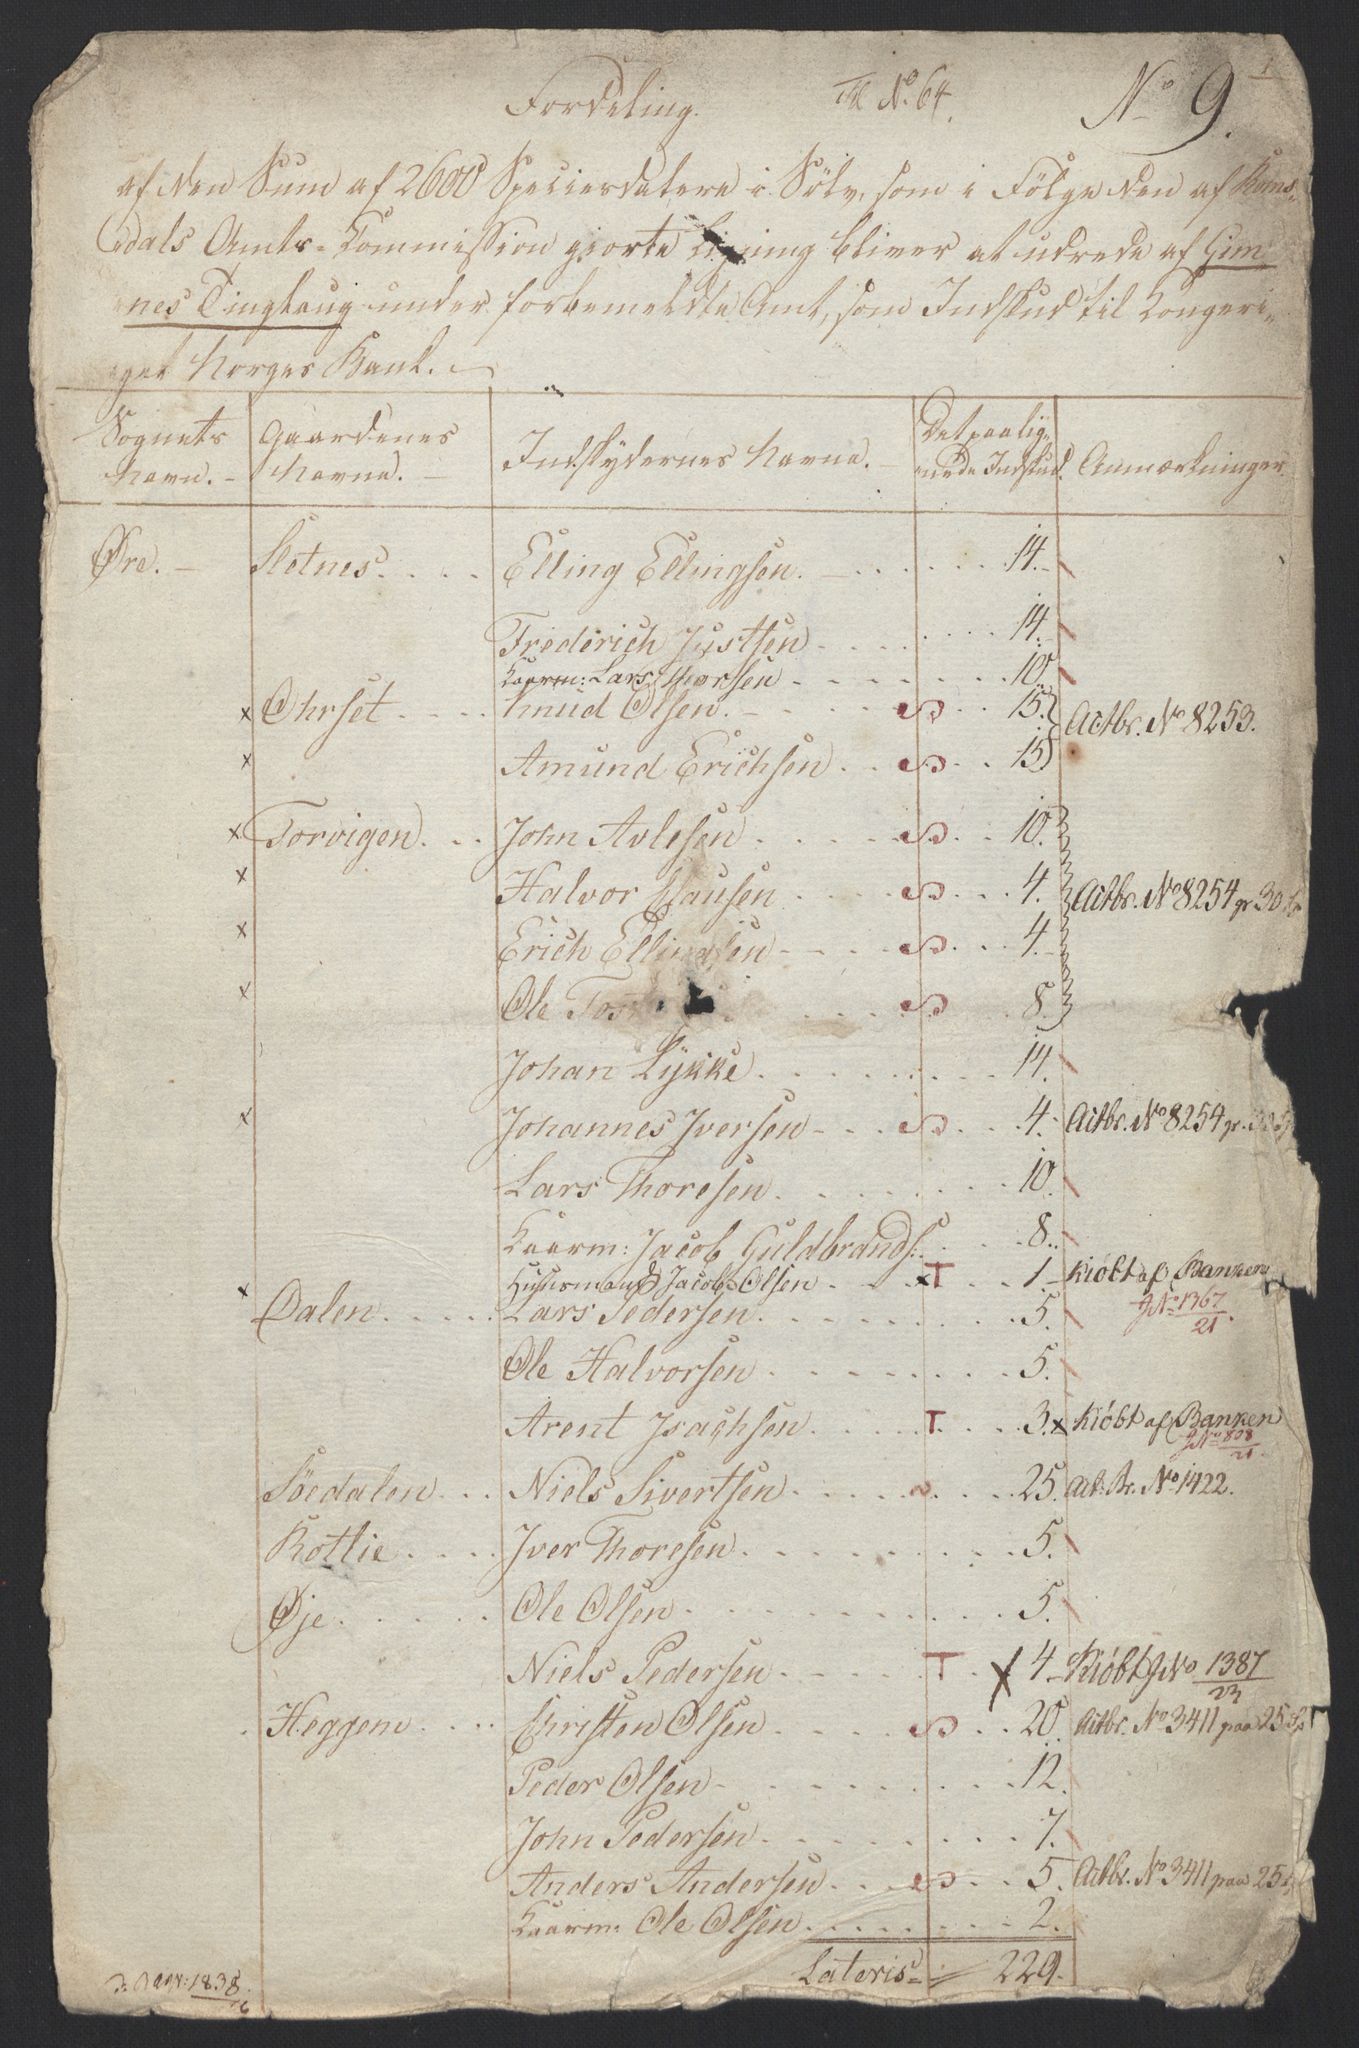 Fordeling.
Til No. 64.
No 9.
1
af den Sum af 2600 Speciesdalere i Sölv, som i Fölge den af Roms-
dals Amts-Commission giorte Ligning bliver at udrede af Gim
nes Tinglaug under forbemeldte Amt, som Indskud til Kongeri-
get Norges Bank.
Sognets Navn. - Gaardenes Navne. - Indskydernes Navne. - Det paalig- nede Indskud. Anmærkninger.
Øre. - Sletnes. Elling Ellingsen. 14.
Frederich Justsen 14.
Kaarm: Lars Thorsen 10.
x Ohrset Knud Olsen. S 15. Actbr. No 8253.
x Amund Erichsen S 15
x Torvigen John Avlesen S 10.
x Halvor Clausen S 4. Actbr. No 8254 pr 30 Sp
x Erich Ellingsen S 4.
x Ole S 8.
Johan Lykke 14.
x Johannes Iversen S 4. Actbr. No 8254 pr. 30 Sp
Lars Thoresen 10.
Kaarm: Jacob Guldbrands: 8.
Huusmand Jacob Olsen x T 1 Kiöbt af Banken
x Dalen Lars Pedersen 5. JNo 1367/21.
Ole Halvorsen 5.
Arent Isachsen T 3. x Kiöbt af Banken
JNo 808/21
Söedalen Niels Sivertsen 25. Act. Br. No 1422.
Rotlie Iver Thoresen 5.
Øje Ole Olsen 5.
Niels Pedersen T X 4 Kiöbt JNo 1387/23
Heggem Christen Olsen S 20. Actbr. No 3411 paa 25 Sp
Peder Olsen 12.
John Pedersen 7.
Anders Andersen S 5. Actbr. No 3411 paa 25 S
Kaarm: Ole Olsen 2.
Lateris = 229.
1838.